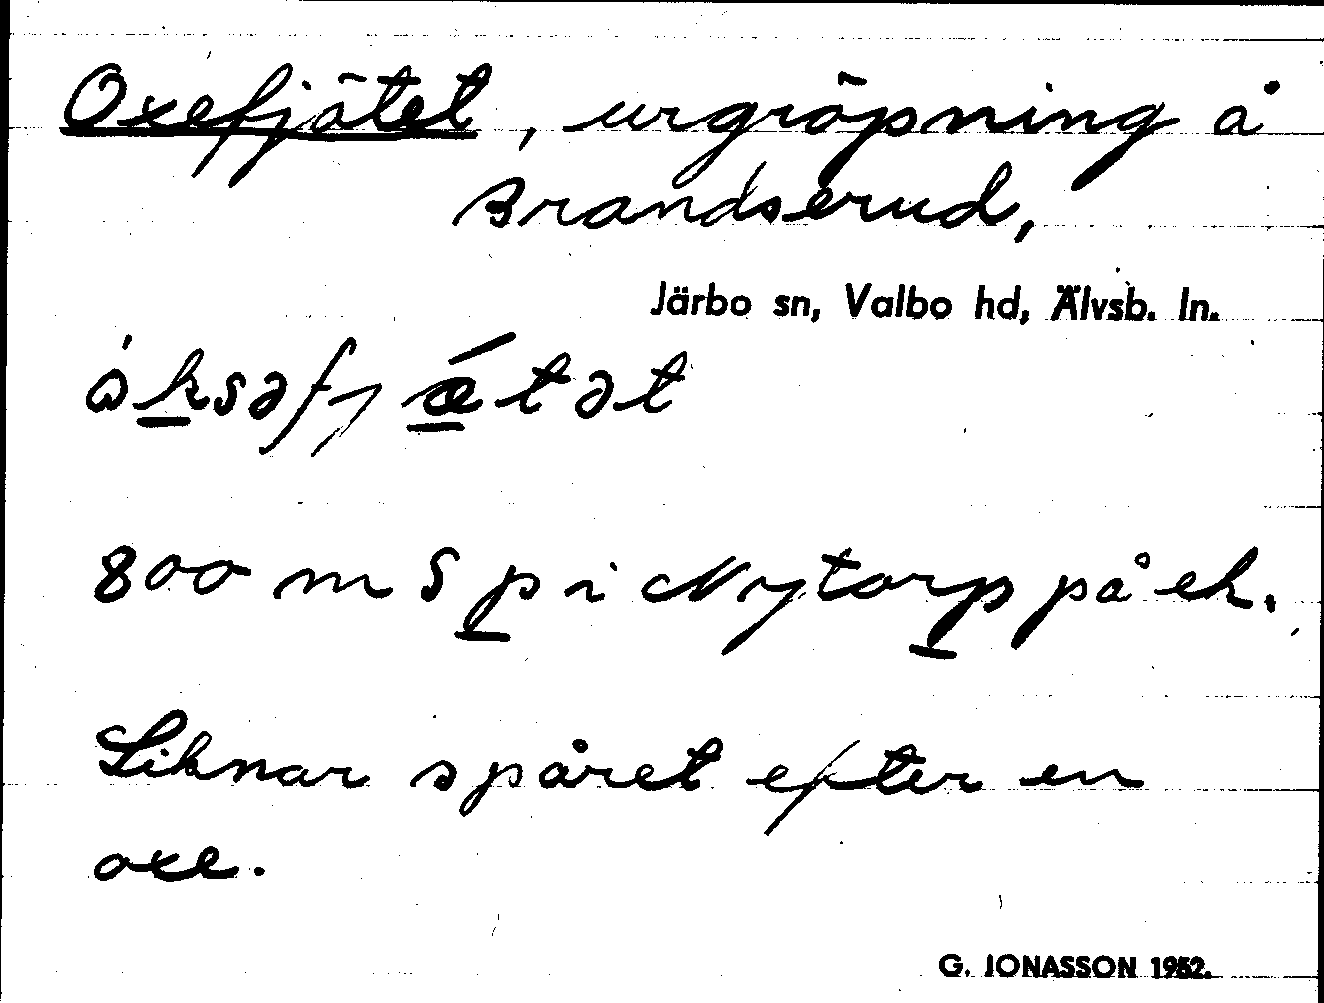 Oxefjätet, urgröpning å
Brandserud,
Järbo sn, Valbo hd, Älvsb. ln.
ɷ́ksəfjǽtət
800 m S p i Nytorp på ek.
Liknar spåret efter en
oxe.
G. JONASSON 1952.